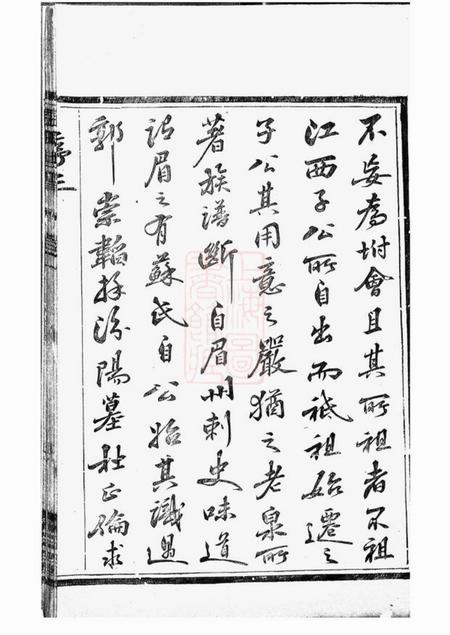 不妄為坿會且其所祖者不祖
江西子公所自出而祗祖始遷之
子公其用意之嚴猶之老泉所
著族譜斷自眉州刺史味道
謂眉之有蘇氏自公始其識過
郭崇韜拜汾陽墓杜正倫求
序 三
上海圖書館藏